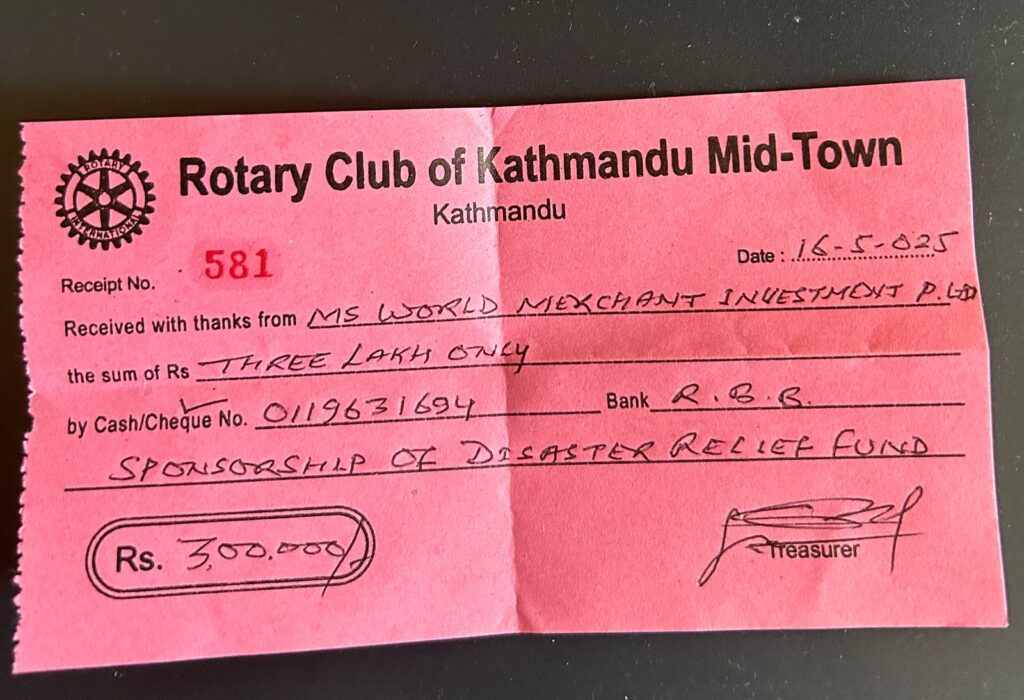 ROTARY INTERNATIONAL
Rotary Club of Kathmandu Mid-Town
Kathmandu
Date : 16-5-025
Receipt No. 581
Received with thanks from MS WORLD MERCHANT INVESTMENT P. LTD
the sum of Rs THREE LAKH ONLY
by Cash/Cheque No. 0119631694 Bank R.B.B.
SPONSORSHIP OF DISASTER RELIEF FUND
Rs. 3,00,000/
Treasurer